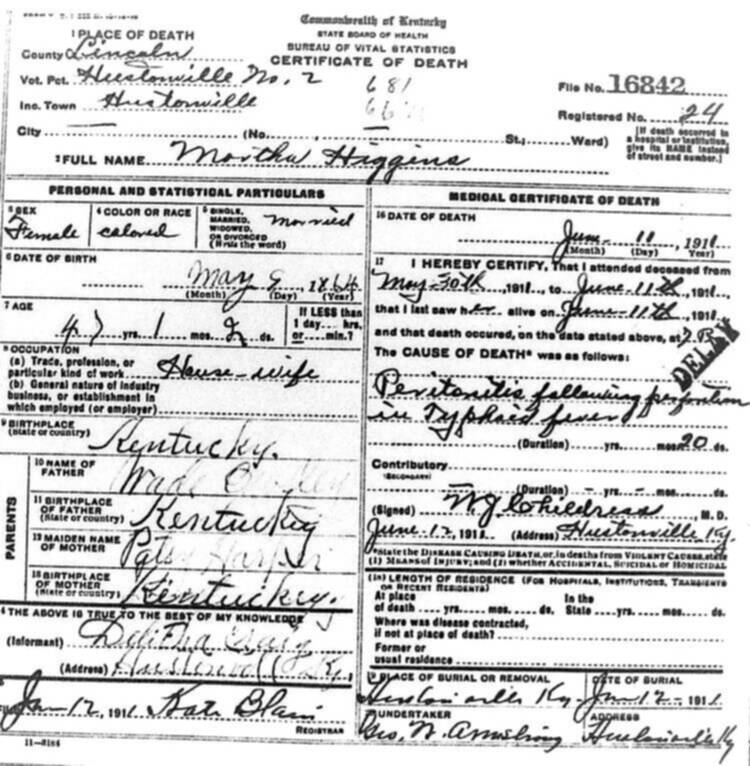 Commonwealth of Kentucky
STATE BOARD OF HEALTH
BUREAU OF VITAL STATISTICS
CERTIFICATE OF DEATH
1 PLACE OF DEATH
County Lincoln
Vot. Pct. Hustonville No. 2
681
Inc. Town Hustonville
File No. 16842
Registered No. 24
City (No. St.; Ward)
[If death occurred in a hospital or institution, give its NAME instead of street and number.]
2 FULL NAME Martha Higgins
PERSONAL AND STATISTICAL PARTICULARS
3 SEX Female
4 COLOR OR RACE colored
5 SINGLE, MARRIED, WIDOWED, OR DIVORCED (Write the word) Married
6 DATE OF BIRTH
May 9 1864
(Month) (Day) (Year)
7 AGE
47 yrs. 1 mos. 2 ds.
If LESS than 1 day hrs. or min.?
8 OCCUPATION
(a) Trade, profession, or particular kind of work House-wife
(b) General nature of industry business, or establishment in which employed (or employer)
9 BIRTHPLACE
(State or country) Kentucky.
PARENTS
10 NAME OF FATHER Wade
11 BIRTHPLACE OF FATHER
(State or country) Kentucky
12 MAIDEN NAME OF MOTHER Patsy
13 BIRTHPLACE OF MOTHER
(State or country) Kentucky.
THE ABOVE IS TRUE TO THE BEST OF MY KNOWLEDGE
(Informant) Craig
(Address) Hustonville Ky.
Jun 12, 1911 Kate Blain
REGISTRAR
11-3184
MEDICAL CERTIFICATE OF DEATH
16 DATE OF DEATH
June 11, 1911
(Month) (Day) (Year)
17 I HEREBY CERTIFY, That I attended deceased from
May 30th, 1911, to June 11th, 1911,
that I last saw her alive on June 11th, 1911,
and that death occured, on the date stated above, at 7 P.
DELAY
The CAUSE OF DEATH* was as follows:
Peritonitis following perforation
in Typhoid fever
(Duration) yrs. mos. 20 ds.
Contributory
(SECONDARY)
(Duration) yrs. mos. ds.
(Signed) W J Childress M.D.
June 12, 1911. (Address) Hustonville Ky.
*State the DISEASE CAUSING DEATH, or, in deaths from VIOLENT CAUSES, state
(1) MEANS OF INJURY; and (2) whether ACCIDENTAL, SUICIDAL OR HOMICIDAL
LENGTH OF RESIDENCE (FOR HOSPITALS, INSTITUTIONS, TRANSIENTS OR RECENT RESIDENTS)
At place of death yrs. mos. ds. In the State yrs. mos. ds.
Where was disease contracted, if not at place of death?
Former or usual residence
PLACE OF BURIAL OR REMOVAL
Hustonville Ky
DATE OF BURIAL
Jun 12- 1911
UNDERTAKER
Geo. W. Armstrong
ADDRESS
Hustonville Ky